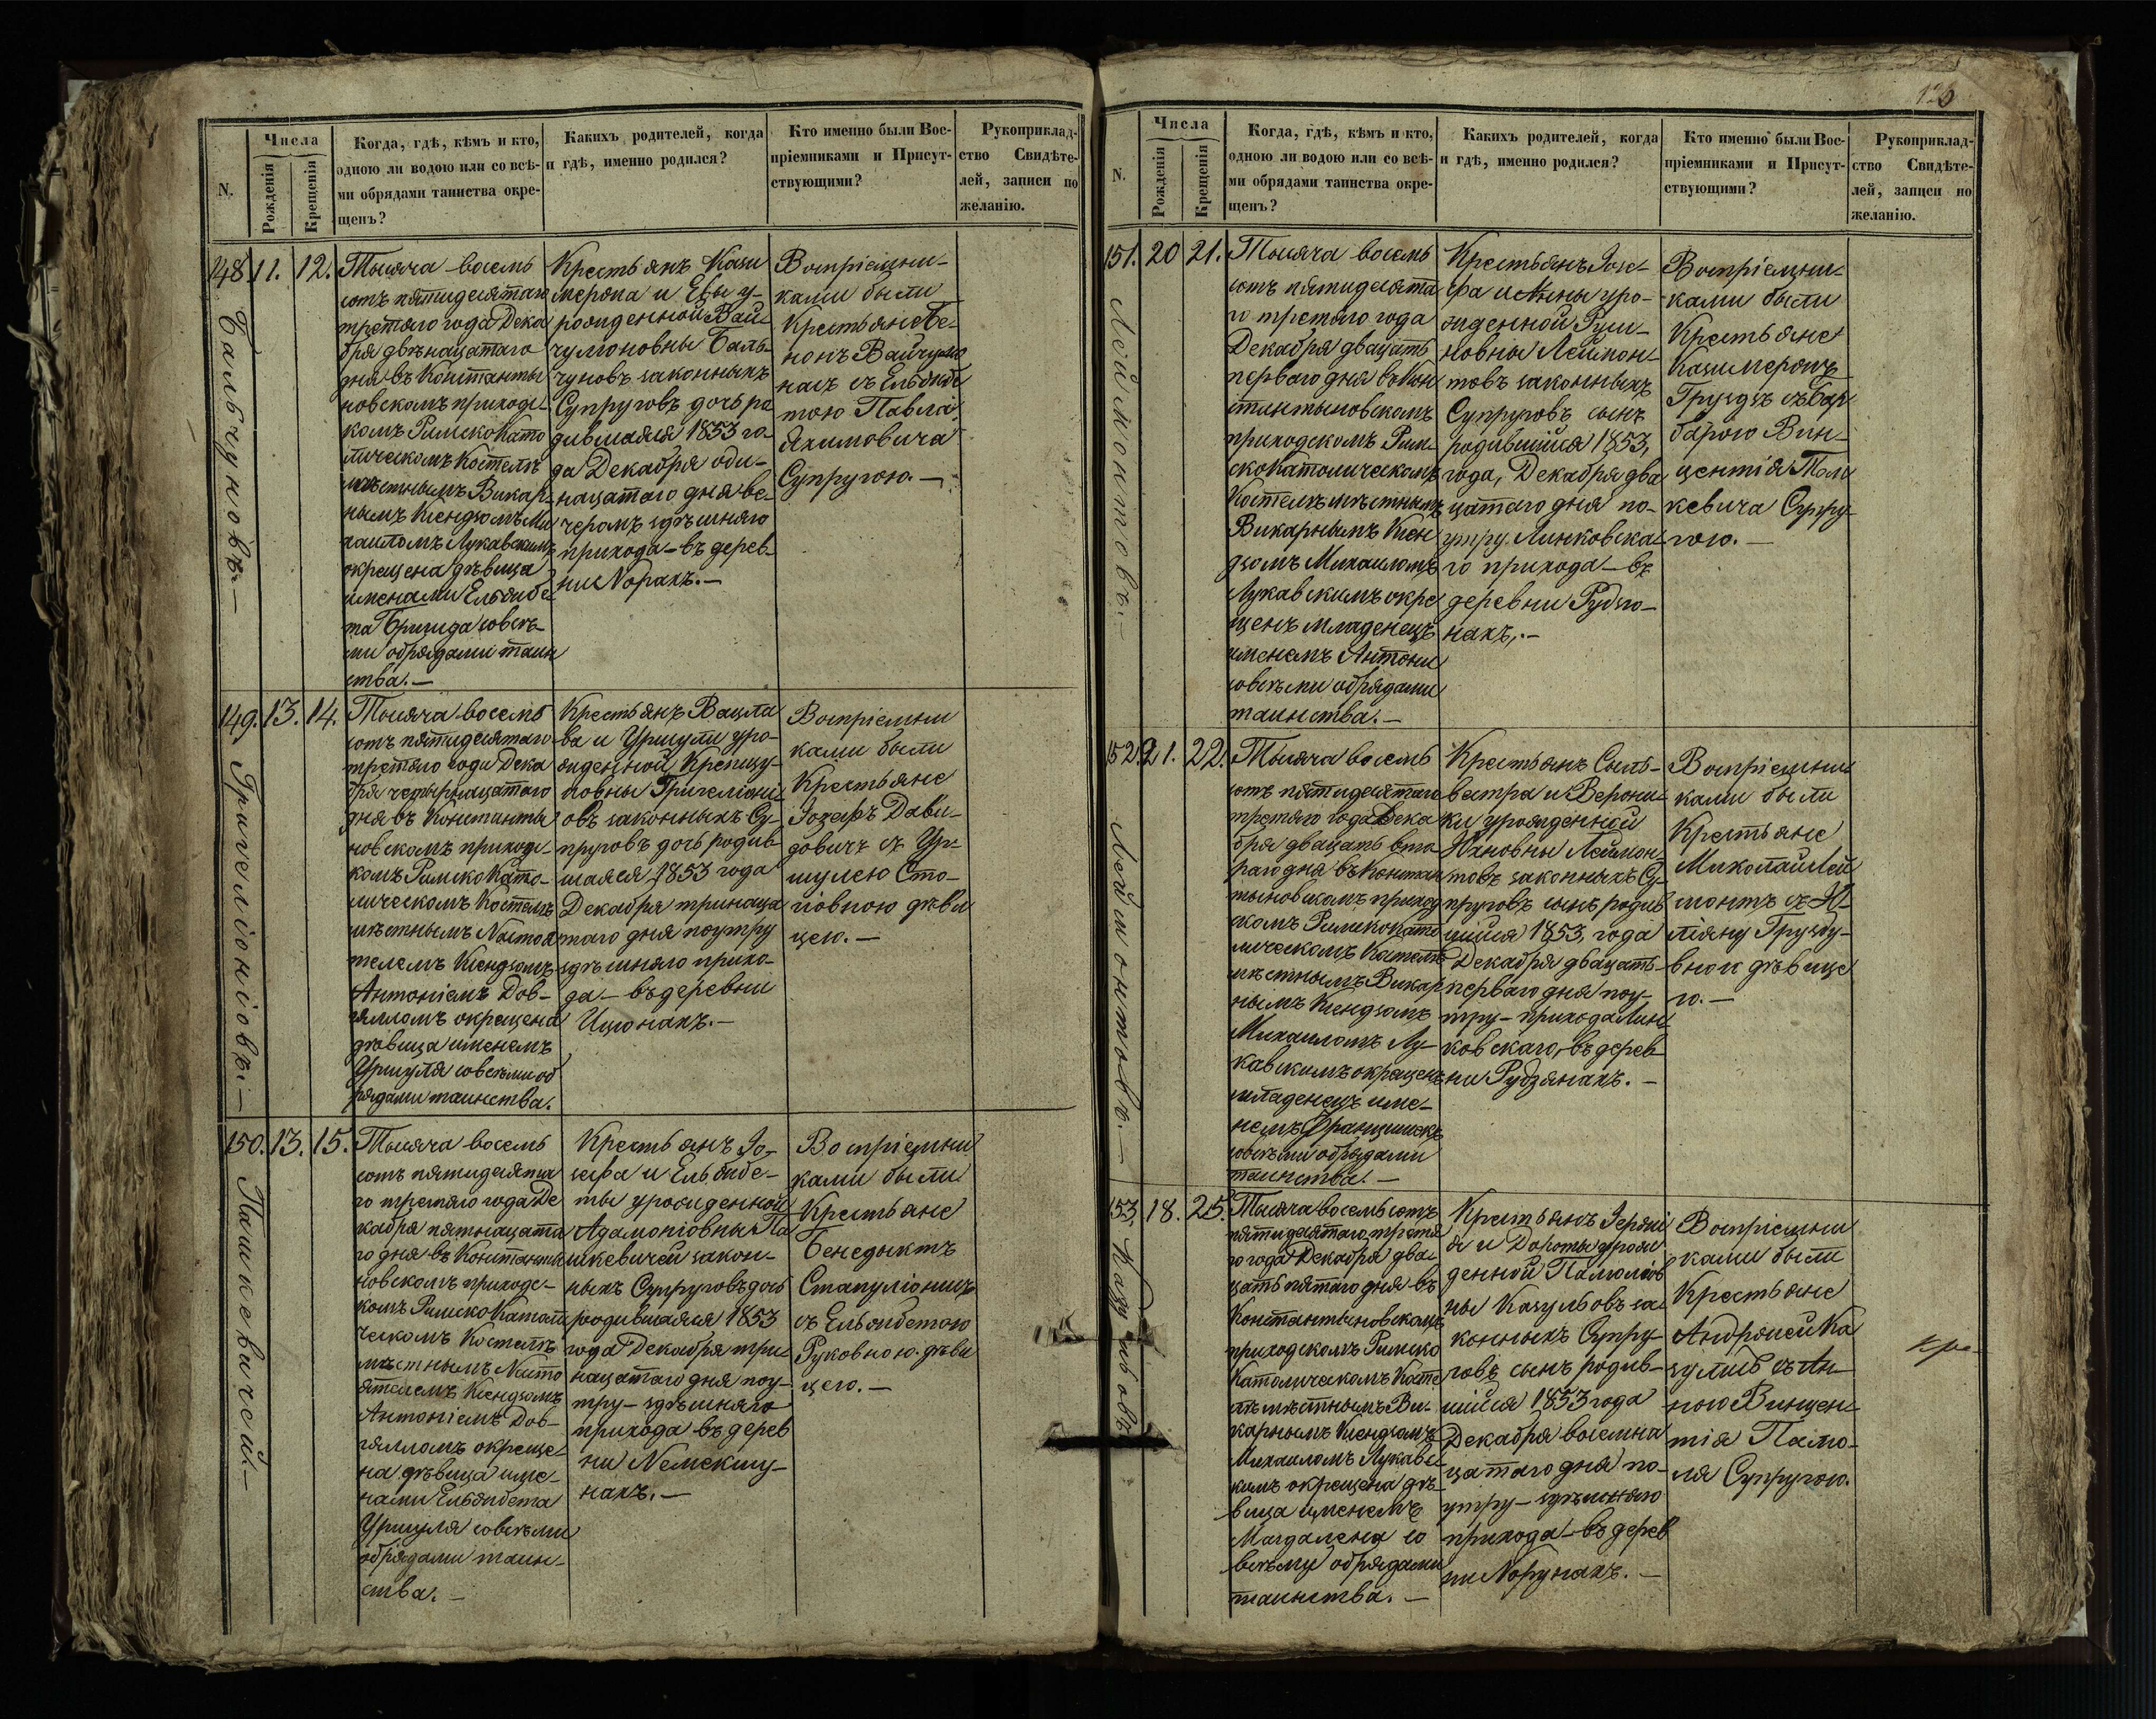 N.
Числа
Рожденія
Крещенія
Когда, гдѣ, кѣмъ и кто,
одною ли водою или со всѣ-
ми обрядами таинства окре-
щенъ?
Какихъ родителей, когда
и гдѣ, именно родился?
Кто именно были Вос-
пріемниками и Присут-
ствующими?
Рукоприклад-
ство Свидѣте-
лей, записи по
желанію.
148.
11.
12.
Бальчуновъ. —
Тысяча восемь
сотъ пятидесятаго
третяго года Дека
бря двѣнацатаго
дня въ Константы
новскомъ приходс-
комъ Римско Като
лическомъ Костелѣ
мѣстнымъ Викар-
нымъ Ксендзомъ Ми
хаиломъ Лукавскимъ
окрещена дѣвица
именами Ельжбе
та Бригида совсѣ-
ми обрядами таин
ства. —
Крестьянъ Кази
мерова и Евы у-
рожденной Вай-
чулюновны Баль-
чуновъ законныхъ
Супруговъ дочь ро
дившаяся 1853 го-
да Декабря оди-
нацатаго дня ве-
черомъ здѣшняго
прихода — въ дерев-
ни Норахъ. —
Воспріемни-
ками были
Крестьяне Бе-
нонъ Вайчулю
насъ съ Ельжбе
тою Павла
Якимовича
Супругою. —
149.
13.
14.
Григеліоніовъ. —
Тысяча восемь
сотъ пятидесятаго
третяго года Дека
бря четырнацатаго
дня въ Константы
новскомъ приходс-
комъ Римско Като-
лическомъ Костелѣ
мѣстнымъ Настоя
телемъ Ксендзомъ
Антоніемъ Дов-
гялломъ окрещена
дѣвица именемъ
Уршуля совсѣми об
рядами таинства.
Крестьянъ Вацла
ва и Уршули уро-
жденной Крепшу-
новны Григеліоні-
овъ законныхъ Су-
пруговъ дочь родив
шаяся 1853 года
Декабря тринаца
таго дня поутру
здѣшняго прихо-
да — въ деревни
Ицюнахъ. —
Воспріемни
ками были
Крестьяне
Іозефъ Дави-
довичъ съ Ур-
шулею Сто-
новною дѣви
цею. —
150.
13.
15.
Пашкевичей. —
Тысяча восемь
сотъ пятидесята
го третяго года Де
кабря пятнацата
го дня въ Константы
новскомъ приходс-
комъ Римско Католи
ческомъ Костелѣ
мѣстнымъ Насто
ятелемъ Ксендзомъ
Антоніемъ Дов-
гялломъ окреще-
на дѣвица име-
нами Ельжбета
Уршуля совсѣми
обрядами таин-
ства. —
Крестьянъ Іо-
зефа и Ельжбе-
ты урожденной
Адамоніовны Па
шкевичей закон-
ныхъ Супруговъ дочь
родившаяся 1853
года Декабря три-
нацатаго дня поу-
тру — здѣшняго
прихода въ дерев
ни Немекшу-
нахъ. —
Воспріемни
ками были
Крестьяне
Бенедыктъ
Стапуліонисъ
съ Ельжбетою
Руковною дѣви
цею. —
N.
Числа
Рожденія
Крещенія
Когда, гдѣ, кѣмъ и кто,
одною ли водою или со всѣ-
ми обрядами таинства окре-
щенъ?
Какихъ родителей, когда
и гдѣ, именно родился?
Кто именно были Вос-
пріемниками и Присут-
ствующими?
Рукоприклад-
ство Свидѣте-
лей, записи по
желанію.
151.
20
21.
Леймонтовъ. —
Тысяча восемь
сотъ пятидесята
го третяго года
Декабря двацать
перваго дня въ Кон
стантыновскомъ
приходскомъ Рим-
ско Католическомъ
Костелѣ мѣстнымъ
Викарнымъ Ксен
дзомъ Михаиломъ
Лукавскимъ окре
щенъ младенецъ
именемъ Антони
совсѣми обрядами
таинства. —
Крестьянъ Іозе-
фа и Анны уро-
жденной Руш-
новны Леймон-
товъ законныхъ
Супруговъ сынъ
родившійся 1853,
года, Декабря два
цатаго дня по-
утру Линковска-
го прихода — въ
деревни Рудзю-
нахъ, . —
Воспріемни-
ками были
Крестьяне
Казимеромъ
Груздъ съ Бар
барою Вин-
центія Толи
кевича Супру
гою. —
152.
21.
22.
Леймонтовъ. —
Тысяча восемь
сотъ пятидесятаго
третяго года Дека
бря двацать вто-
раго дня въ Констан
тыновскомъ приход
скомъ Римско Като
лическомъ Костелѣ
мѣстнымъ Викар
нымъ Ксендзомъ
Михаиломъ Лу-
кавскимъ окрещенъ
младенецъ име-
немъ Францишекъ
совсѣми обрядами
таинства. —
Крестьянъ Сыль-
вестра и Верони-
ки урожденной
Яновны Леймон-
товъ законныхъ Су-
пруговъ сынъ родив
шійся 1853, года
Декабря двацать
перваго дня поу-
тру — прихода Лин
ковскаго, въ дерев
ни Рудзянахъ. —
Воспріемни
ками были
Крестьяне
Миколай Лей
монтъ съ Ю-
ліяну Грузду-
вною дѣвице
ю. —
153.
18.
25.
Казульовъ
Тысяча восемь сотъ
пятидесятаго третя
го года Декабря два-
цать пятаго дня въ
Константыновскомъ
приходскомъ Римско
Католическомъ Косте
лѣ мѣстнымъ Ви-
карнымъ Ксендзомъ
Михаиломъ Лукавс-
кимъ окрещена дѣ-
вица именемъ
Магдалена со
всѣми обрядами
таинства. —
и Дороты урож
денной Памюліов
ны Казульовъ за-
конныхъ Супру-
говъ сынъ родив-
шійся 1853 года
Декабря восемна
цатаго дня по-
утру — здѣшняго
прихода — въ дерев
ни Норунахъ. —
Воспріемни
ками были
Крестьяне
Андржей Ка
зулисъ съ Ан-
ною Винцен-
тія Памю-
ля Супругою.